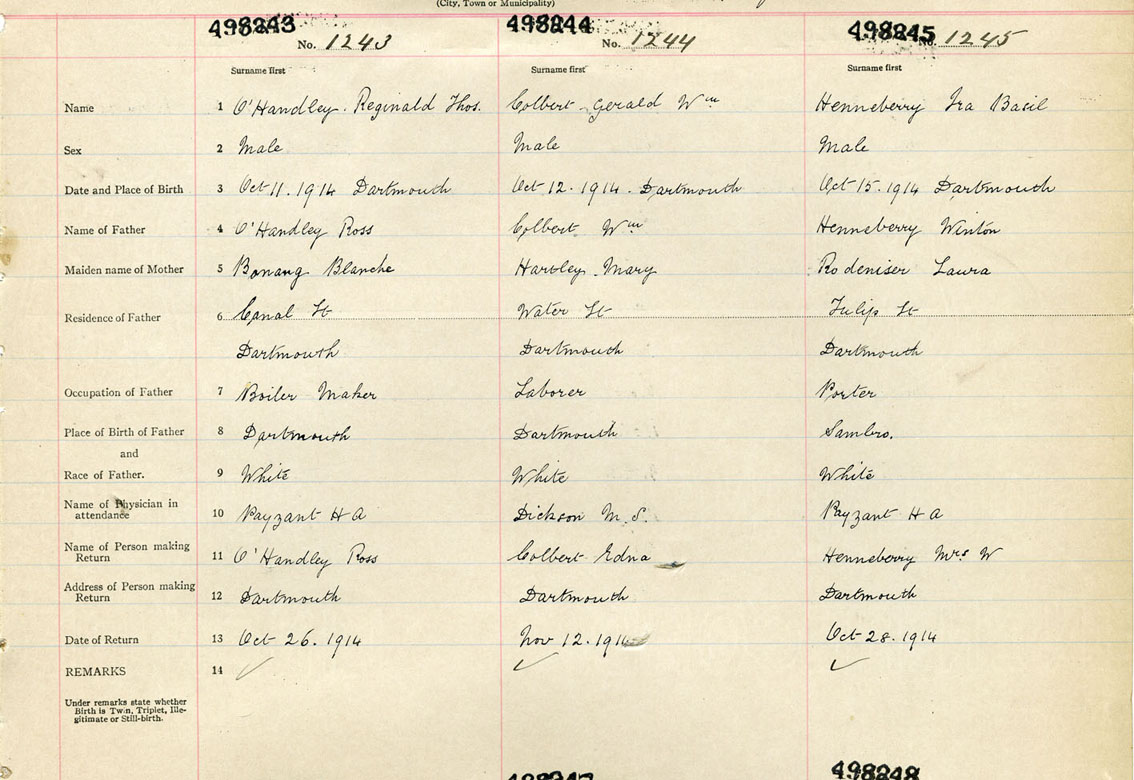 (City, Town or Municipality)
498243 498244 498245
No. 1243 No. 1244 No. 1245
Surname first Surname first Surname first
Name 1 O'Handley. Reginald Thos. Colbert Gerald Wm Henneberry Ira Basil
Sex 2 Male Male Male
Date and Place of Birth 3 Oct 11. 1914 Dartmouth Oct 12. 1914. Dartmouth Oct 15. 1914 Dartmouth
Name of Father 4 O'Handley Ross Colbert Wm Henneberry Winton
Maiden name of Mother 5 Bonang Blanche Mary Rodeniser Laura
Residence of Father 6 Canal St Water St Tulip St
Dartmouth Dartmouth Dartmouth
Occupation of Father 7 Boiler Maker Laborer Porter
Place of Birth of Father 8 Dartmouth Dartmouth Sambro.
and
Race of Father. 9 White White White
Name of Physician in
attendance 10 Payzant H A Dickson M. S. Payzant H A
Name of Person making
Return 11 O'Handley Ross Colbert Edna Henneberry Mrs W
Address of Person making
Return 12 Dartmouth Dartmouth Dartmouth
Date of Return 13 Oct 26. 1914 Nov 12. 1914 Oct 28. 1914
REMARKS 14 ✓ ✓ ✓
Under remarks state whether
Birth is Twin, Triplet, Ille-
gitimate or Still-birth.
498247 498248